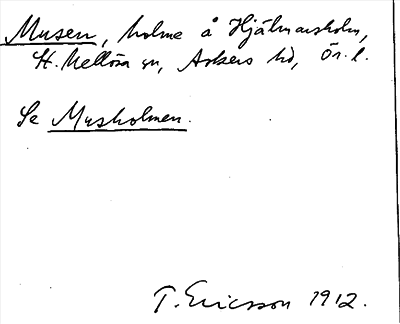 Musen, holme å Hjälmarsholm,
St. Mellösa sn, Askers hd, Ör. l.
Se Musholmen.
T. Ericsson 1912.